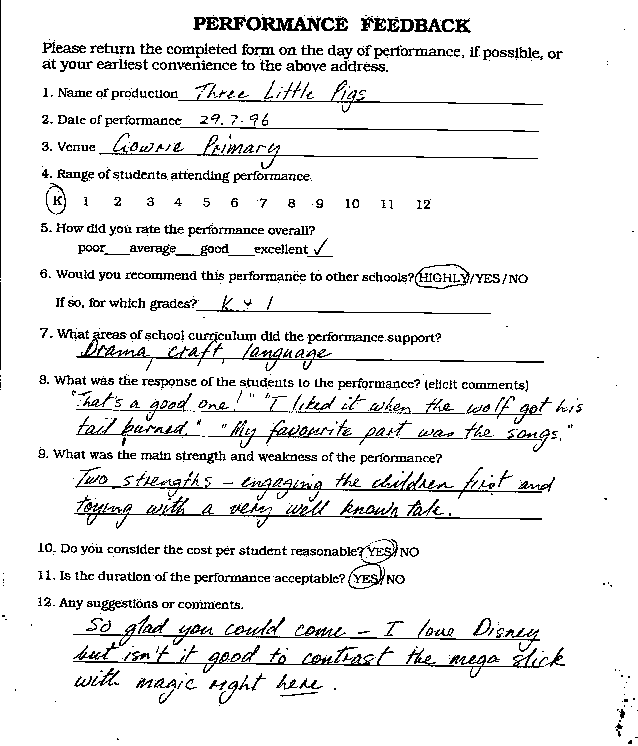 PERFORMANCE FEEDBACK
Please return the completed form on the day of performance, if possible, or
at your earliest convenience to the above address.
1. Name of production Three Little Pigs
2. Date of performance 29.7.96
3. Venue Gowrie Primary
4. Range of students attending performance.
K 1 2 3 4 5 6 7 8 9 10 11 12
5. How did you rate the performance overall?
poor___average___good___excellent ✓
6. Would you recommend this performance to other schools? HIGHLY/YES/NO
If so, for which grades? K + 1
7. What areas of school curriculum did the performance support?
Drama, craft, language
8. What was the response of the students to the performance? (elicit comments)
"That's a good one!" "I liked it when the wolf got his
tail burned." "My favourite part was the songs."
9. What was the main strength and weakness of the performance?
Two strengths - engaging the children first and
toying with a very well known tale.
10. Do you consider the cost per student reasonable? YES/NO
11. Is the duration of the performance acceptable? YES/NO
12. Any suggestions or comments.
So glad you could come - I love Disney
but isn't it good to contrast the mega slick
with magic right here.